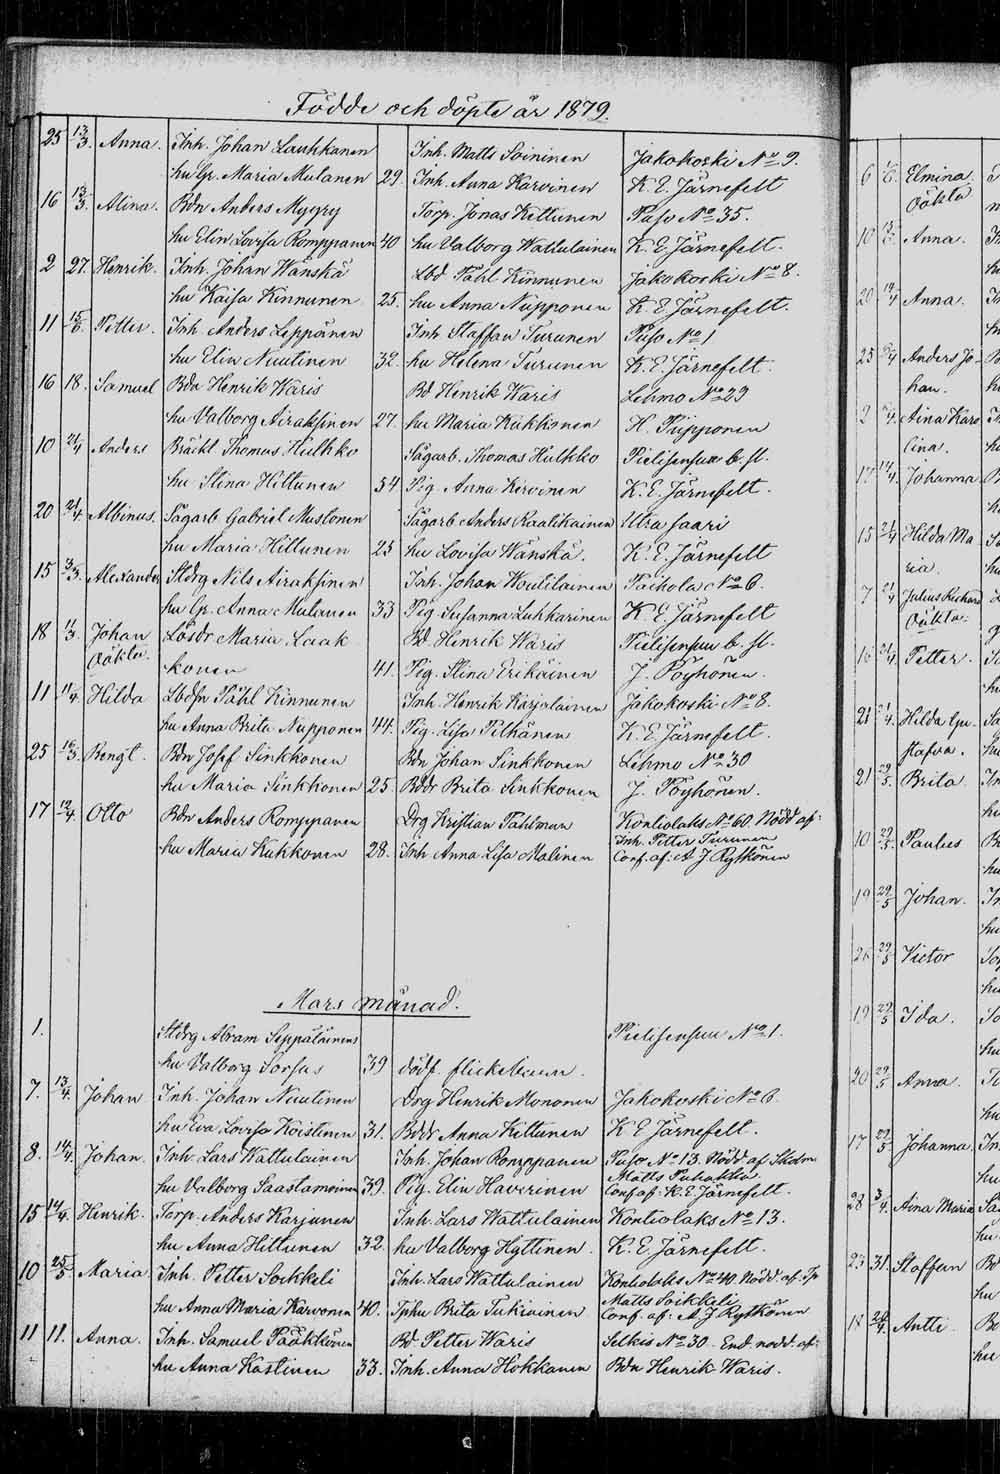 Födde och döpte år 1879.
25 13/3. Anna. Inh. Johan Laukkanen Inh. Matts Soininen Jakokoski No 9.
hu Gr. Maria Mulanen 29. Inh. Anna Karvinen K. E. Järnefelt
16 13/3. Alina. Bdn Anders Myyry Torp. Jonas Kettunen Puso No 35.
hu Elin Lovisa Romppanen 40 hu Valborg Wattulainen K. E. Järnefelt.
2 27. Henrik. Inh. Johan Wänskä Lbd Påhl Kinnunen Jakokoski No 8.
hu Kaisa Kinnunen 25. hu Anna Nupponen K. E. Järnefelt.
11 15/6. Petter. Inh. Anders Leppänen Inh Staffan Turunen Puso No 1
hu Elin Nuutinen 32. hu Helena Turunen K. E. Järnefelt.
16 18. Samuel Bdn Henrik Waris Bd Henrik Waris Lehmo No 23
hu Valborg Airaksinen 27. hu Maria Kukkonen H. Piipponen
10 21/4 Anders Bräckl Thomas Hulkko Sågarb. Thomas Hulkko Pielisensuu b. st.
hu Stina Hiltunen 34 Pig Anna Kervinen K. E. Järnefelt.
20 21/4. Albinus. Sågarb Gabriel Mustonen Sågarb Anders Raatikainen Utra saari
hu Maria Hiltunen 25 hu Lovisa Wänskä. K. E. Järnefelt
15 3/3. Alexander Stdrg Nils Airaksinen Inh. Johan Woutilainen Paihola No 6.
hu Gr. Anna Mulanen 33 Pig Susanna Luhkarinen K. E. Järnefelt
18 11/3. Johan Lösdr Maria Laak Bd. Henrik Waris Pielisensuu b. st.
Oäkta. konen 41. Pig. Stina Erikäinen J. Pöyhönen.
11 11/4. Hilda Lbdsn Påhl Kinnunen Inh. Henrik Karjalainen Jakokoski No 8.
hu Anna Brita Nupponen 44. Pig. Lisa Pitkänen K. E. Järnefelt.
25 16/3. Bengt. Bdn Josef Sinkkonen Bdn Johan Sinkkonen Lehmo No 30
hu Maria Sinkkonen 25. Bddr Brita Sinkkonen J. Pöyhönen.
17 12/4. Otto Bdn Anders Romppanen Drg Kristian Pahlman Kontiolaks No 60. Nödd af:
Inh. Petter Turunen
hu Maria Kukkonen 28. Inh Anna Lisa Malinen Conf. af: A J Rytkönen
Mars månad.
1. Stdrg Abram Seppäläinen Pielisensuu No 1.
hu Valborg Sorsas 39 dödf. flickebarn.
7. 13/4. Johan Inh. Johan Nuutinen Drg Henrik Mononen Jakokoski No 6
hu Eva Lovisa Koistinen 31. Bddr Anna Kettunen K E Järnefelt.
8. 14/4. Johan. Inh. Lars Wattulainen Inh. Johan Romppanen Puso No 13. Nödd af
Matts Puhakka
hu Valborg Saastamoinen 39. Pig. Elin Haverinen Conf af: K. E. Järnefelt.
15 14/4. Henrik. Torp. Anders Karjunen Inh. Lars Wattulainen Kontiolaks No 13.
hu Anna Hiltunen 32. hu Valborg Hyttinen. K. E. Järnefelt.
10 25/5. Maria Inh. Petter Soikkeli Inh. Lars Wattulainen Kontiolaks No 40. Nödd. af. Tp
Matts Soikkeli
hu Anna Maria Karvonen 40. Tphu Brita Tukiainen Conf. af: A J Rytkönen
11 11. Anna. Inh. Samuel Pääkkönen Bd. Petter Waris Selkis No 30. End. nödd. af:
hu Anna Kostinen 33. Inh. Anna Hokkanen Bdn Henrik Waris.
6 Elmina.
Oäkta
10 Anna.
20 19/4 Anna.
25 Anders Jo-
han.
2 Aina Karo
lina.
17 14/4. Johanna
15 21/4 Hilda Ma
ria.
7 21/4 Julius Richard
Oäkta.
16 21/4 Petter.
21 21/4. Hilda Gu-
stafva.
21 22/5. Brita.
10 29/5. Paulus
19 29/5 Johan.
26 29/5 Victor
19 29/5 Ida.
20 29/5 Anna.
17 29/5 Johanna.
28 3/4. Aina Maria
23 31. Staffan
18 24/4. Antti